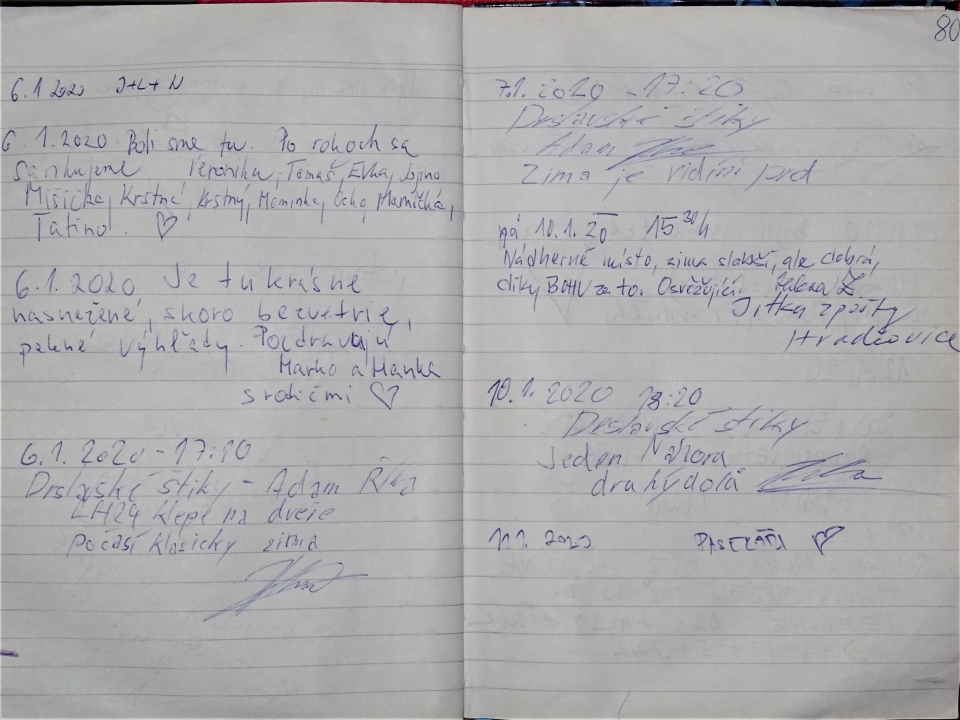 6.1 2020 J+L+N
6. 1.2020 Boli sme tu. Po rokoch sa
sánkujeme Veronika, Tomáš, Evka, Jojino,
Mišička, Krstná, Krstný, Maminka, Mamička,
Tatino. ♡
6.1.2020 Je tu krásne
nasnežené, skoro bezvetrie,
pekné výhľady. Pozdravujú
Marko a Hanka
s rodičmi ♡
6.1.2020 - 17:20
Drslavské štiky - Adam
LH24 klepe na dveře
počasí klasicky zima
80
7.1. 2020 - 17:20
Drslavské štiky
Adam
zima je vidíni prd
pá 10.1.20 15 30 h
Nádherné místo, zima slabší, ale dobrá,
díky BOHU za to. Osvěžující.
Jitka z párty
Hradčovice
10.1.2020 18:20
Drslavské štiky
Jeden Nahora
druhý dolá
11.1. 2020 ♡